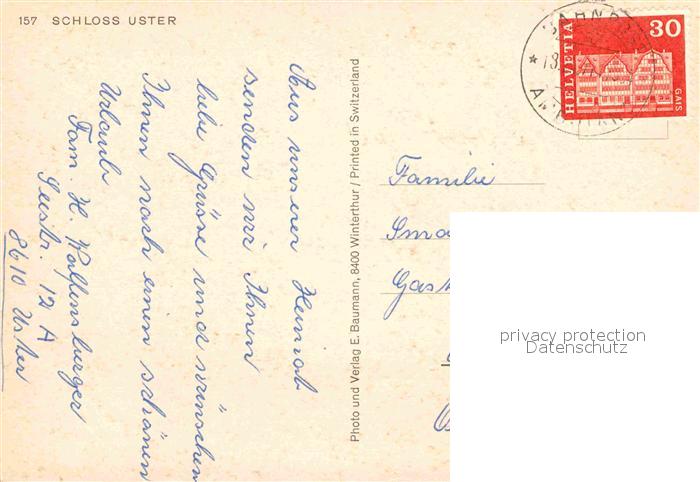 157 SCHLOSS USTER
Aus unserer Heimat
senden wir Ihnen
liebe Grüsse und wünschen
Ihnen noch einen schönen
Urlaub
Fam. H.
Seestr. 12 A
8610 Uster
Photo und Verlag E. Baumann, 8400 Winterthur / Printed in Switzerland
HELVETIA
30
GAIS
Familie
privacy protection
Datenschutz